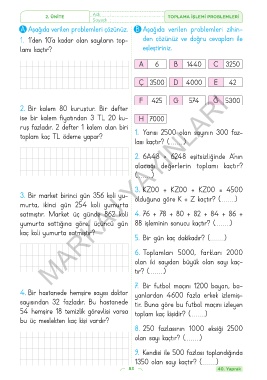 2. ÜNİTE
TOPLAMA İŞLEMİ PROBLEMLERİ
A Aşağıda verilen problemleri çözünüz.
1. 1'den 10'a kadar olan sayıların top-
lamı kaçtır?
2. Bir kalem 80 kuruştur. Bir defter
ise bir kalem fiyatından 3 TL 20 ku-
ruş fazladır. 2 defter 1 kalem alan biri
toplam kaç TL ödeme yapar?
3. Bir market birinci gün 356 koli yu-
murta, ikinci gün 254 koli yumurta
satmıştır. Market üç günde 862 koli
yumurta sattığına göre, üçüncü gün
kaç koli yumurta satmıştır?
4. Bir hastanede hemşire sayısı doktor
sayısından 32 fazladır. Bu hastanede
54 hemşire 18 temizlik görevlisi varsa
bu üç meslekten kaç kişi vardır?
B Aşağıda verilen problemleri zihin-
den çözünüz ve doğru cevapları ile
eşleştiriniz.
A 6 B 1440 C 3250
Ç 3500 D 4000 E 42
F 425 G 574 Ğ 5300
H 7000
1. Yarısı 2500 olan sayının 300 faz-
lası kaçtır? (......)
2. 6A48 + 6248 eşitsizliğinde A'nın
alacağı değerlerin toplamı kaçtır?
(......)
3. KZ00 + KZ00 + KZ00 = 4500
olduğuna göre K + Z kaçtır? (......)
4. 76 + 78 + 80 + 82 + 84 + 86 +
88 işleminin sonucu kaçtır? (......)
5. Bir gün kaç dakikadır? (......)
6. Toplamları 5000, farkları 2000
olan iki sayıdan büyük olan sayı kaç-
tır? (......)
7. Bir futbol maçını 1200 bayan, ba-
yanlardan 4600 fazla erkek izlemiş-
tir. Buna göre bu futbol maçını izleyen
toplam kaç kişidir? (......)
8. 250 fazlasının 1000 eksiği 2500
olan sayı kaçtır? (......)
9. Kendisi ile 500 fazlası toplandığında
1350 olan sayı kaçtır? (......)
83
40. Yaprak